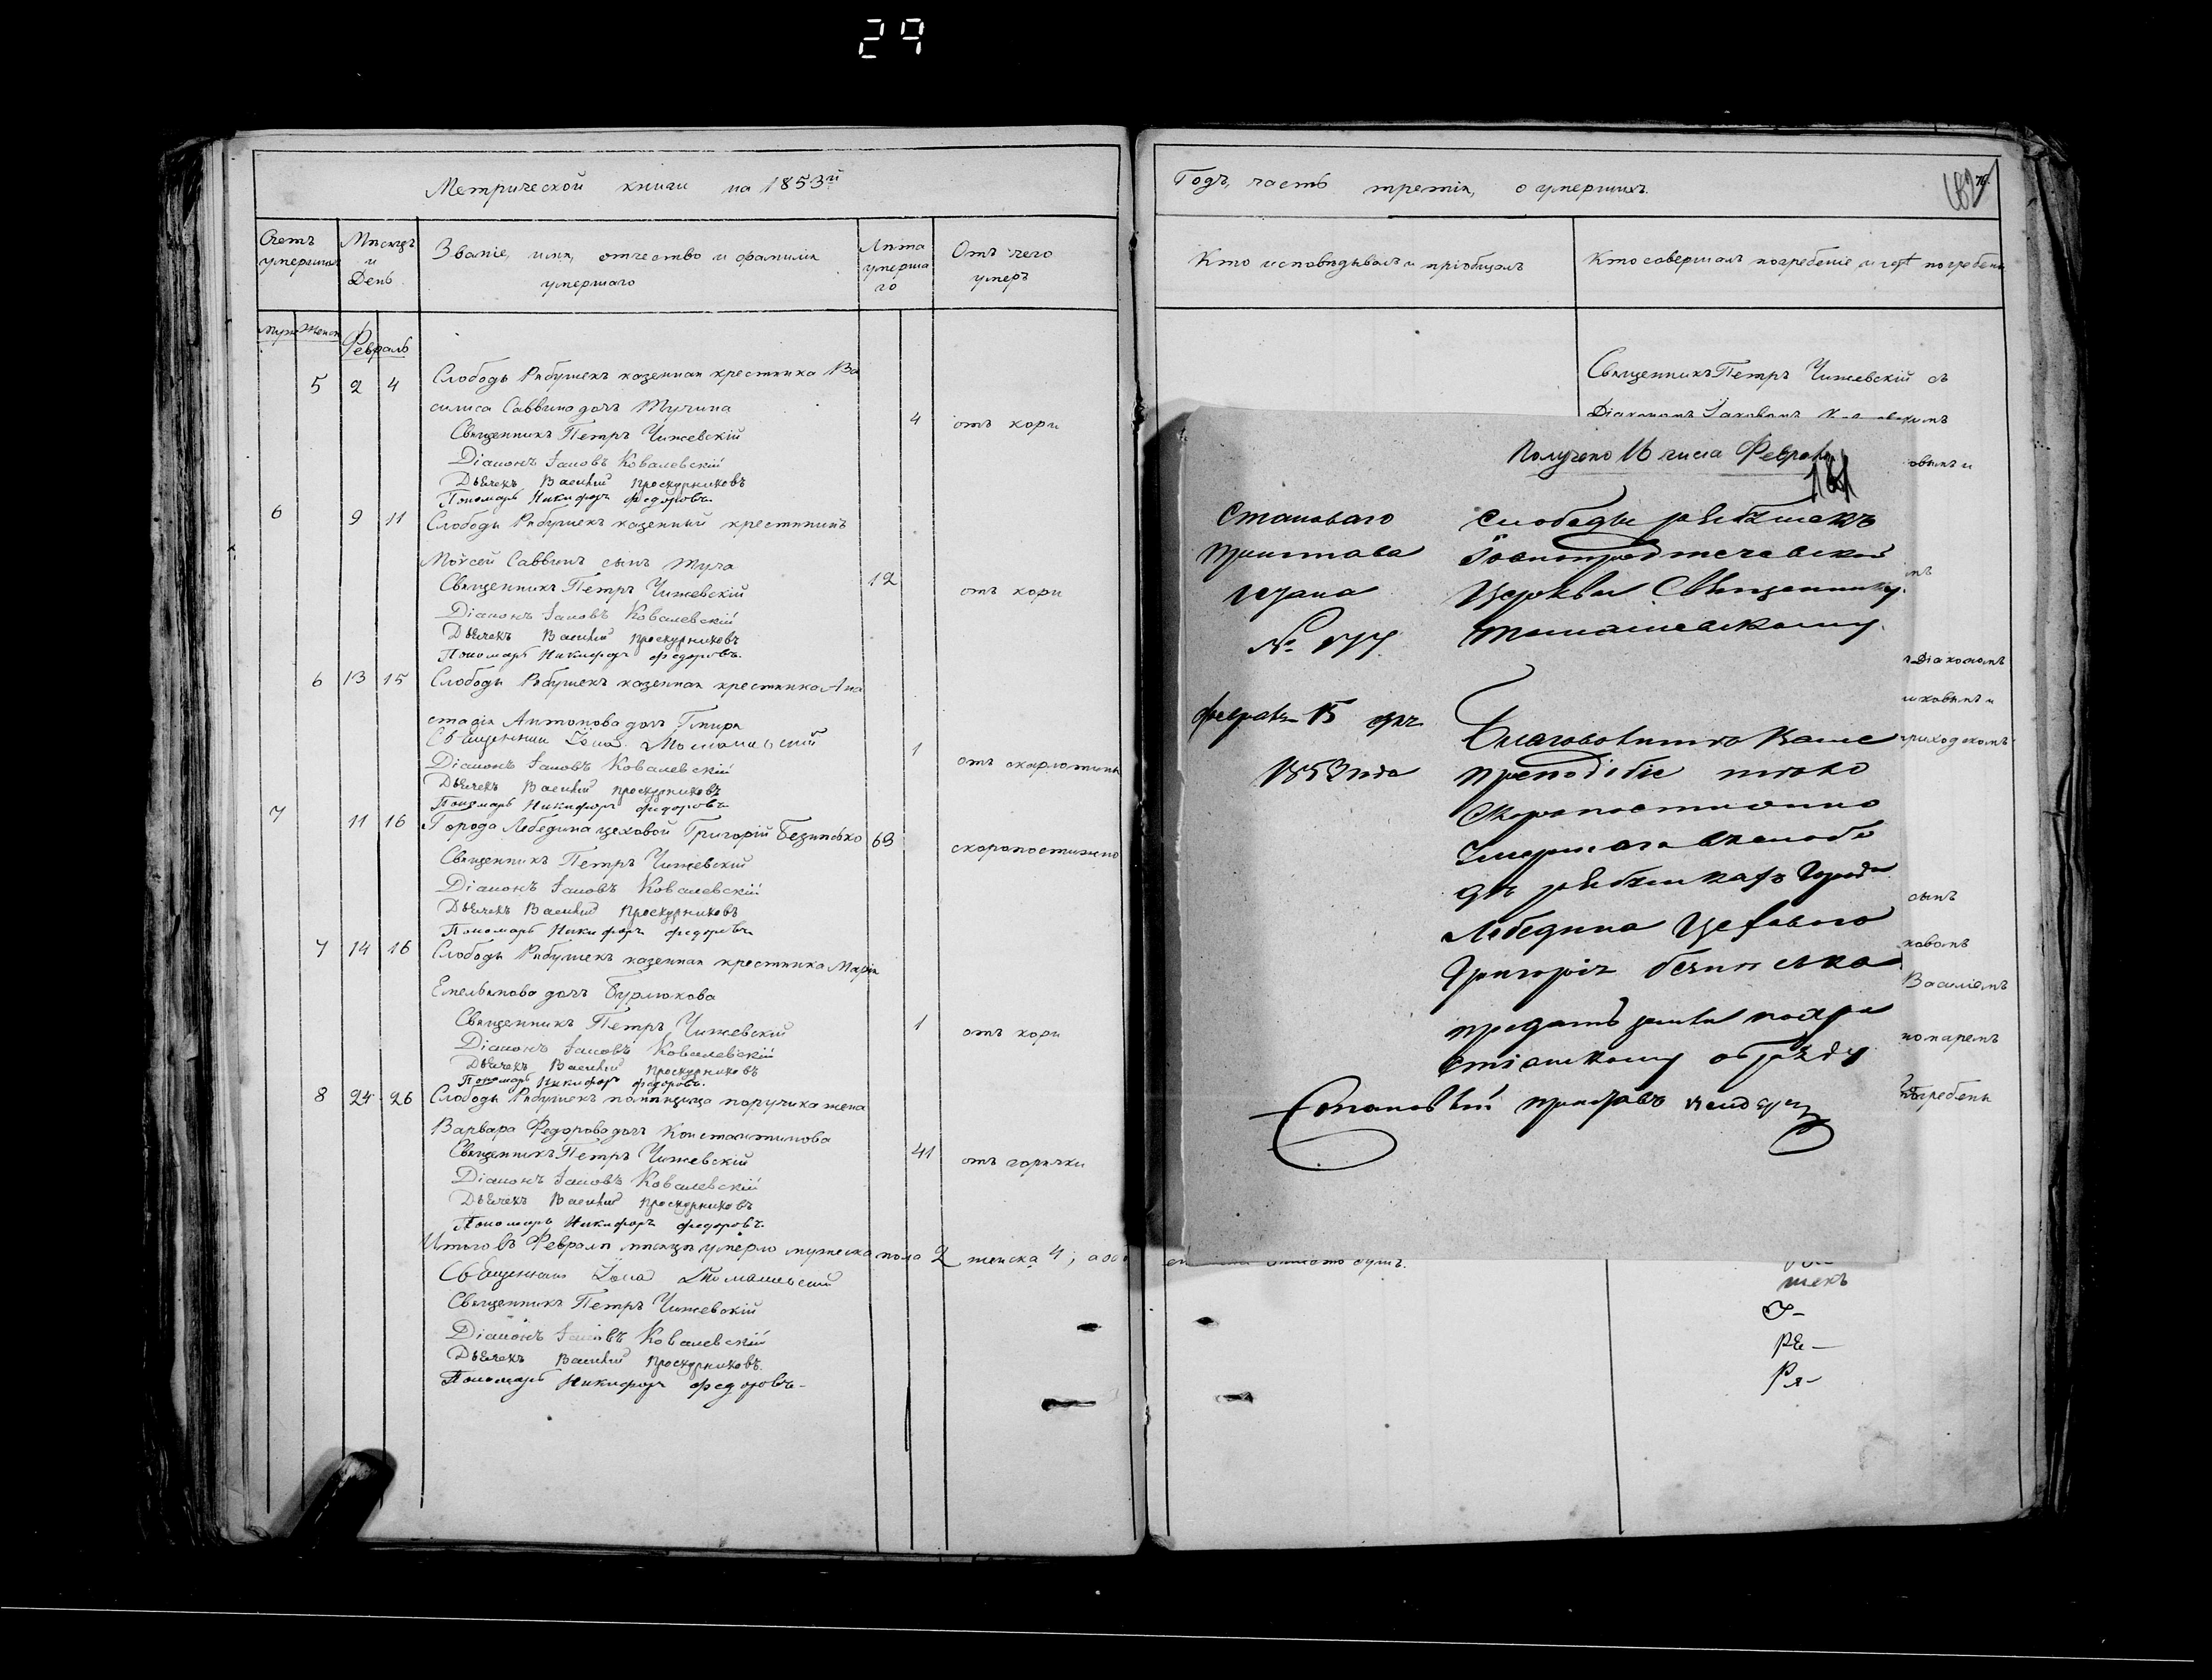 29
Метрической книги на 1853й
Счетъ умершихъ
Мѣсяцъ и День
Званіе, имя, отчество и фамилія умершаго
Лѣта умершаго
Отъ чего умеръ
муж. женск.
Февраль
5 2 4 Слободы Рябушекъ казенная крестянка Ва
силиса Саввина дочь Тучина 4 отъ кори
Священникъ Петръ Чижевскій
Діаконъ Іаковъ Ковалевскій
Дьячекъ Василій Проскурниковъ
Пономарь Никифоръ Федоровъ.
6 9 11 Слободы Рябушекъ казенный крестянинъ
Моѵсей Саввинъ сынъ Туча 12 отъ кори
Священникъ Петръ Чижевскій
Діаконъ Іаковъ Ковалевскій
Дьячекъ Василій Проскурниковъ
Пономарь Никифоръ Федоровъ.
6 13 15 Слободы Рябушекъ казенная крестянка Ана
стасія Антонова дочь 1 отъ скарлотины
Священникъ Іона Томашевскій
Діаконъ Іаковъ Ковалевскій
Дьячекъ Василій Проскурниковъ
Пономарь Никифоръ Федоровъ
7 11 16 Города Лебедина цеховой Григорій 63 скоропостижно
Священникъ Петръ Чижевскій
Діаконъ Іаковъ Ковалевскій
Дьячекъ Василій Проскурниковъ
Пономарь Никифоръ Федоровъ
7 14 16 Слободы Рябушекъ казенная крестянка Марія
Емельянова дочь Бурлюкова 1 отъ кори
Священникъ Петръ Чижевскій
Діаконъ Іаковъ Ковалевскій
Дьячекъ Василій Проскурниковъ
Пономарь Никифоръ Федоровъ.
8 24 26 Слободы Рябушекъ помѣщица поручика жена
Варвара Федорова дочь Константинова 41 отъ горячки
Священникъ Петръ Чижевскій
Діаконъ Іаковъ Ковалевскій
Дьячекъ Василій Проскурниковъ
Пономарь Никифоръ Федоровъ.
Итого въ Февралѣ мѣсяцѣ умерло мужеска пола 2 женска 4; а обо
душъ.
Священникъ Іона Томашевскій
Священникъ Петръ Чижевскій
Діаконъ Іаковъ Ковалевскій
Дьячекъ Василій Проскурниковъ.
Пономарь Никифоръ Федоровъ
Годъ, часть третія, о умершихъ.
Кто исповѣдывалъ и пріобщалъ
Кто совершалъ погребеніе и гдѣ погребены
Священникъ Петръ Чижевскій съ
Діакономъ Іаковомъ
Получено 16 числа Февраля
181
Становаго
Пристава
стана
№ 177
Февраля 15 дня
1853 года
Слободы Рябушекъ
Іоаннопредтечевской
Церкви Священнику
Томашевскому.
Благоволите Ваше
преподобіе тѣло
Скоропостижно
Умершаго въ слобо
дѣ Рябушкахъ Города
Лебедина Цеховаго
Григорія
предать землѣ по Хри
стіанскому обряду
Становой приставъ
Діакономъ
сынъ
Василіемъ
номаремъ
погребены
шекъ